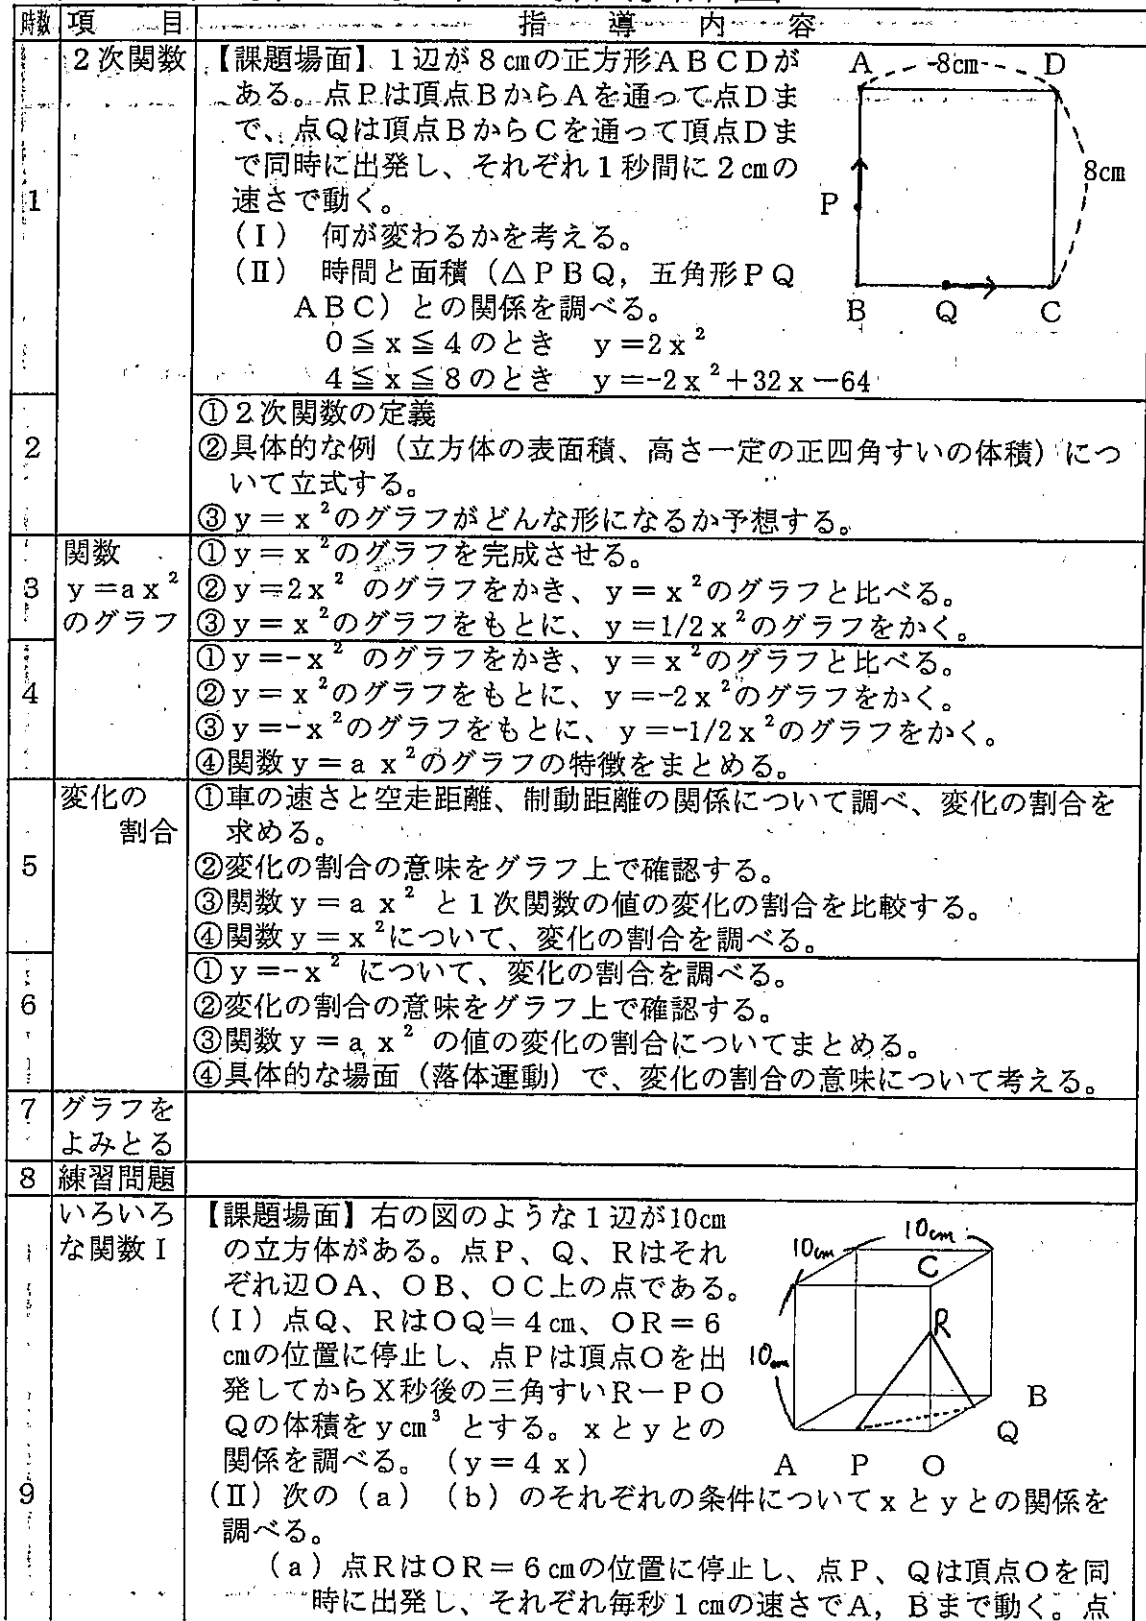 時数 項 目 指 導 内 容
1 2次関数 【課題場面】1辺が8㎝の正方形ABCDが
ある。点Pは頂点BからAを通って点Dま
で、点Qは頂点BからCを通って頂点Dま
で同時に出発し、それぞれ1秒間に2㎝の
速さで動く。
(Ⅰ) 何が変わるかを考える。
(Ⅱ) 時間と面積(△PBQ,五角形PQ
ABC)との関係を調べる。
0≦x≦4のとき y=2x²
4≦x≦8のとき y=-2x²+32x-64
A 8cm D
8cm
P
B Q C
2 ①2次関数の定義
②具体的な例(立方体の表面積、高さ一定の正四角すいの体積)につ
いて立式する。
③y=x²のグラフがどんな形になるか予想する。
3 関数
y=ax²
のグラフ
①y=x²のグラフを完成させる。
②y=2x² のグラフをかき、y=x²のグラフと比べる。
③y=x²のグラフをもとに、y=1/2x²のグラフをかく。
4 ①y=-x² のグラフをかき、y=x²のグラフと比べる。
②y=x²のグラフをもとに、y=-2x²のグラフをかく。
③y=-x²のグラフをもとに、y=-1/2x²のグラフをかく。
④関数y=ax²のグラフの特徴をまとめる。
5 変化の
割合
①車の速さと空走距離、制動距離の関係について調べ、変化の割合を
求める。
②変化の割合の意味をグラフ上で確認する。
③関数y=ax² と1次関数の値の変化の割合を比較する。
④関数y=x²について、変化の割合を調べる。
6 ①y=-x² について、変化の割合を調べる。
②変化の割合の意味をグラフ上で確認する。
③関数y=ax² の値の変化の割合についてまとめる。
④具体的な場面(落体運動)で、変化の割合の意味について考える。
7 グラフを
よみとる
8 練習問題
9 いろいろ
な関数Ⅰ
【課題場面】右の図のような1辺が10㎝
の立方体がある。点P、Q、Rはそれ
ぞれ辺OA、OB、OC上の点である。
(Ⅰ)点Q、RはOQ=4㎝、OR=6
㎝の位置に停止し、点Pは頂点Oを出
発してからX秒後の三角すいR-PO
Qの体積をy㎝³ とする。xとyとの
関係を調べる。(y=4x)
10cm 10cm
C
R
10cm
B
Q
A P O
(Ⅱ)次の(a)(b)のそれぞれの条件についてxとyとの関係を
調べる。
(a)点RはOR=6㎝の位置に停止し、点P、Qは頂点Oを同
時に出発し、それぞれ毎秒1㎝の速さでA,Bまで動く。点